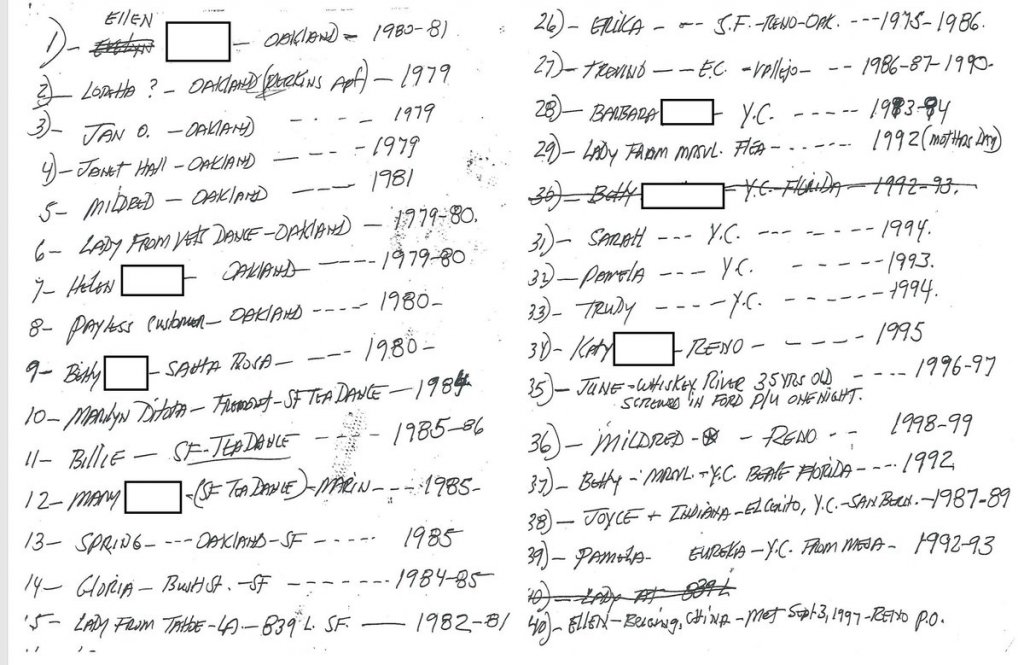 Ellen
1) - Evelyn - OAKLAND - 1980-81
2) - Loretta ? - OAKLAND (PERKINS Apt) - 1979
3) - JAN O. - OAKLAND - - - - 1979
4) - Janet Hall - OAKLAND - - - - 1979
5 - MILDRED - OAKLAND - - - - 1981
6 - LADY FROM VETS DANCE - OAKLAND - 1979-80.
7 - HELEN - OAKLAND - - - - 1979-80
8 - PAYLESS Customer - OAKLAND - - - - 1980 -
9 - Betty - SANTA ROSA - - - - 1980 -
10 - MARILYN - Fremont - SF TEA DANCE - 1984
11 - BILLIE - SF-TEA DANCE - - - - 1985-86
12 - MARY - (SF TEA DANCE) - MARIN - - - 1985 -
13 - SPRING - - - - OAKLAND - SF - - - - 1985
14 - GLORIA - BUSH ST. - SF - - - - - - 1984-85 -
15 - LADY FROM TAHOE - LA - 839 L. SF. - 1982-81
26) - ERIKA - - - S.F. - RENO - OAK. - - - 1975-1986.
27) - TREVINO - - E.C. - Vallejo - - - 1986-87-1990 -
28) - BARBARA Y.C. - - - - - 1983-84
29) - LADY FROM MRSVL. FLEA - - - - - - 1992 (mothers Day)
30) - Betty - Y.C. - FLORIDA - 1992-93.
31) - SARAH - - - Y.C. - - - - - - 1994.
32) - PAMELA - - - - Y.C. - - - - - 1993.
33) - TRUDY - - - - - Y.C. - - - - - 1994.
34) - KATY - RENO - - - - - 1995
35) - JUNE - WHISKEY RIVER 35 YRS OLD - - - - 1996-97
SCREWED IN FORD P/U ONE NIGHT.
36) - MILDRED - - RENO - - 1998-99
37) - Betty - MRSVL. - Y.C. BEALE FLORIDA - - - - 1992
38) - JOYCE + INDIANA - El Cerrito, Y.C. - SAN BERN. - 1987-89
39) - PAMELA - EUREKA - Y.C. FROM MESA - 1992-93
40) - LADY AT 839 L
40) - ELLEN - Beijing, CHINA - Met Sept. 3, 1997 - RENO P.O.